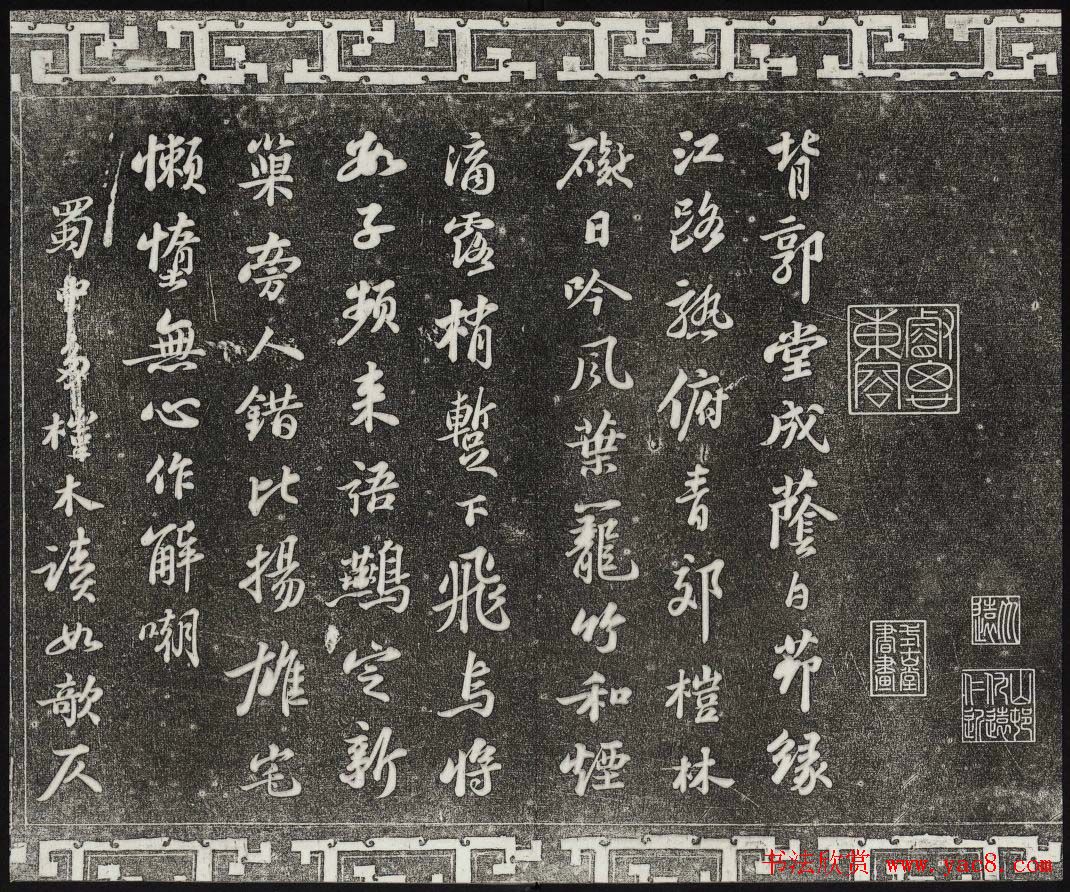 睿思東閣
背郭堂成蔭白茆緣
江路熟俯青郊榿林
礙日吟風葉籠竹和煙
滴露梢暫下飛烏將
數子頻來語鷰定新
巢旁人錯比揚雄宅
懶惰無心作解嘲
蜀中多榿木讀如欹仄
书法欣赏 www.yac8.com